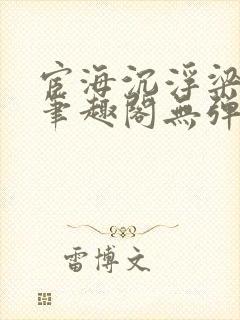 宦海沉浮梁
笔趣阁無弹
雷博文